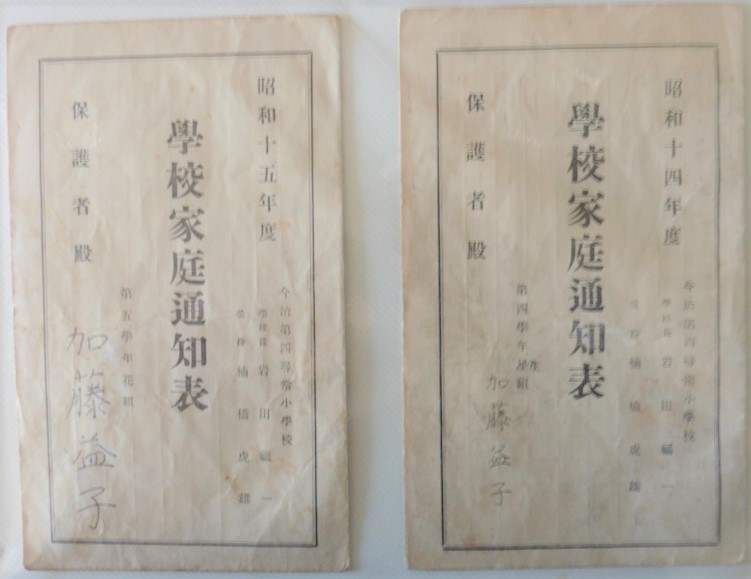 昭和十四年度
今治第四尋常小學校
學校長 岩田福一
受持 楠橋虎雄
學校家庭通知表
第四學年星組
生
加藤益子
保護者殿
昭和十五年度
今治第四尋常小學校
學校長 岩田福一
受持 楠橋虎雄
學校家庭通知表
第五學年花組
加藤益子
保護者殿